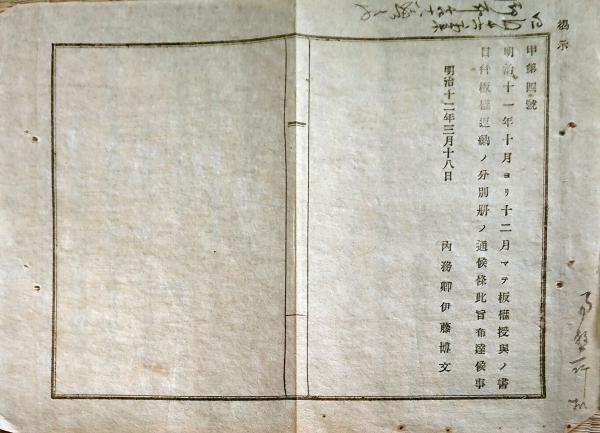 揭示
甲第四號
明治十一年十月ヨリ十二月マテ板權授與ノ書
目幷板權返納ノ分別册ノ通候條此旨布達候事
明治十二年三月十八日
內務卿伊藤博文